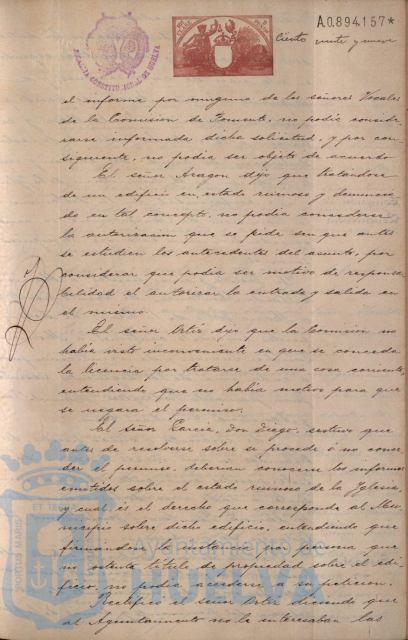 A.0.894.157*
Ciento veinte y nueve
ALCALDIA CONSTITUCIONAL DE HUELVA
el informe por ninguno de los señores Vocales
de la Comision de Fomento, no podia conside-
rarse informada dicha solicitud, y por con-
siguiente, no podia ser objeto de acuerdo
El señor Aragon dijo que tratandose
de un edificio en estado ruinoso y denuncia-
do en tal concepto, no podia concederse
la autorizacion que se pide sin que antes
se estudien los antecedentes del asunto, por
considerar que podia ser motivo de responsa-
bilidad el autorizar la entrada y salida en
el mismo.
El señor Ortiz dijo que la Comision no
habia visto inconveniente en que se conceda
la licencia por tratarse de una cosa corriente,
entendiendo que no habia motivo para que
se negara el permiso.
El señor Garcia, Don Diego, sostuvo que
antes de resolverse sobre si procede ó no conce-
der el permiso, deberian conocerse los informes
emitidos sobre el estado ruinoso de la Iglesia,
y cual es el derecho que corresponde al Mu-
nicipio sobre dicho edificio, entendiendo que
firmandose la instancia por persona que
no ostenta título de propiedad sobre el edi-
ficio, no podia accederse a su peticion.
Rectificó el señor Ortiz diciendo que
al Ayuntamiento no le interesaban las
PORTUS MARIS ET TERRAE
Ayuntamiento de
HUELVA